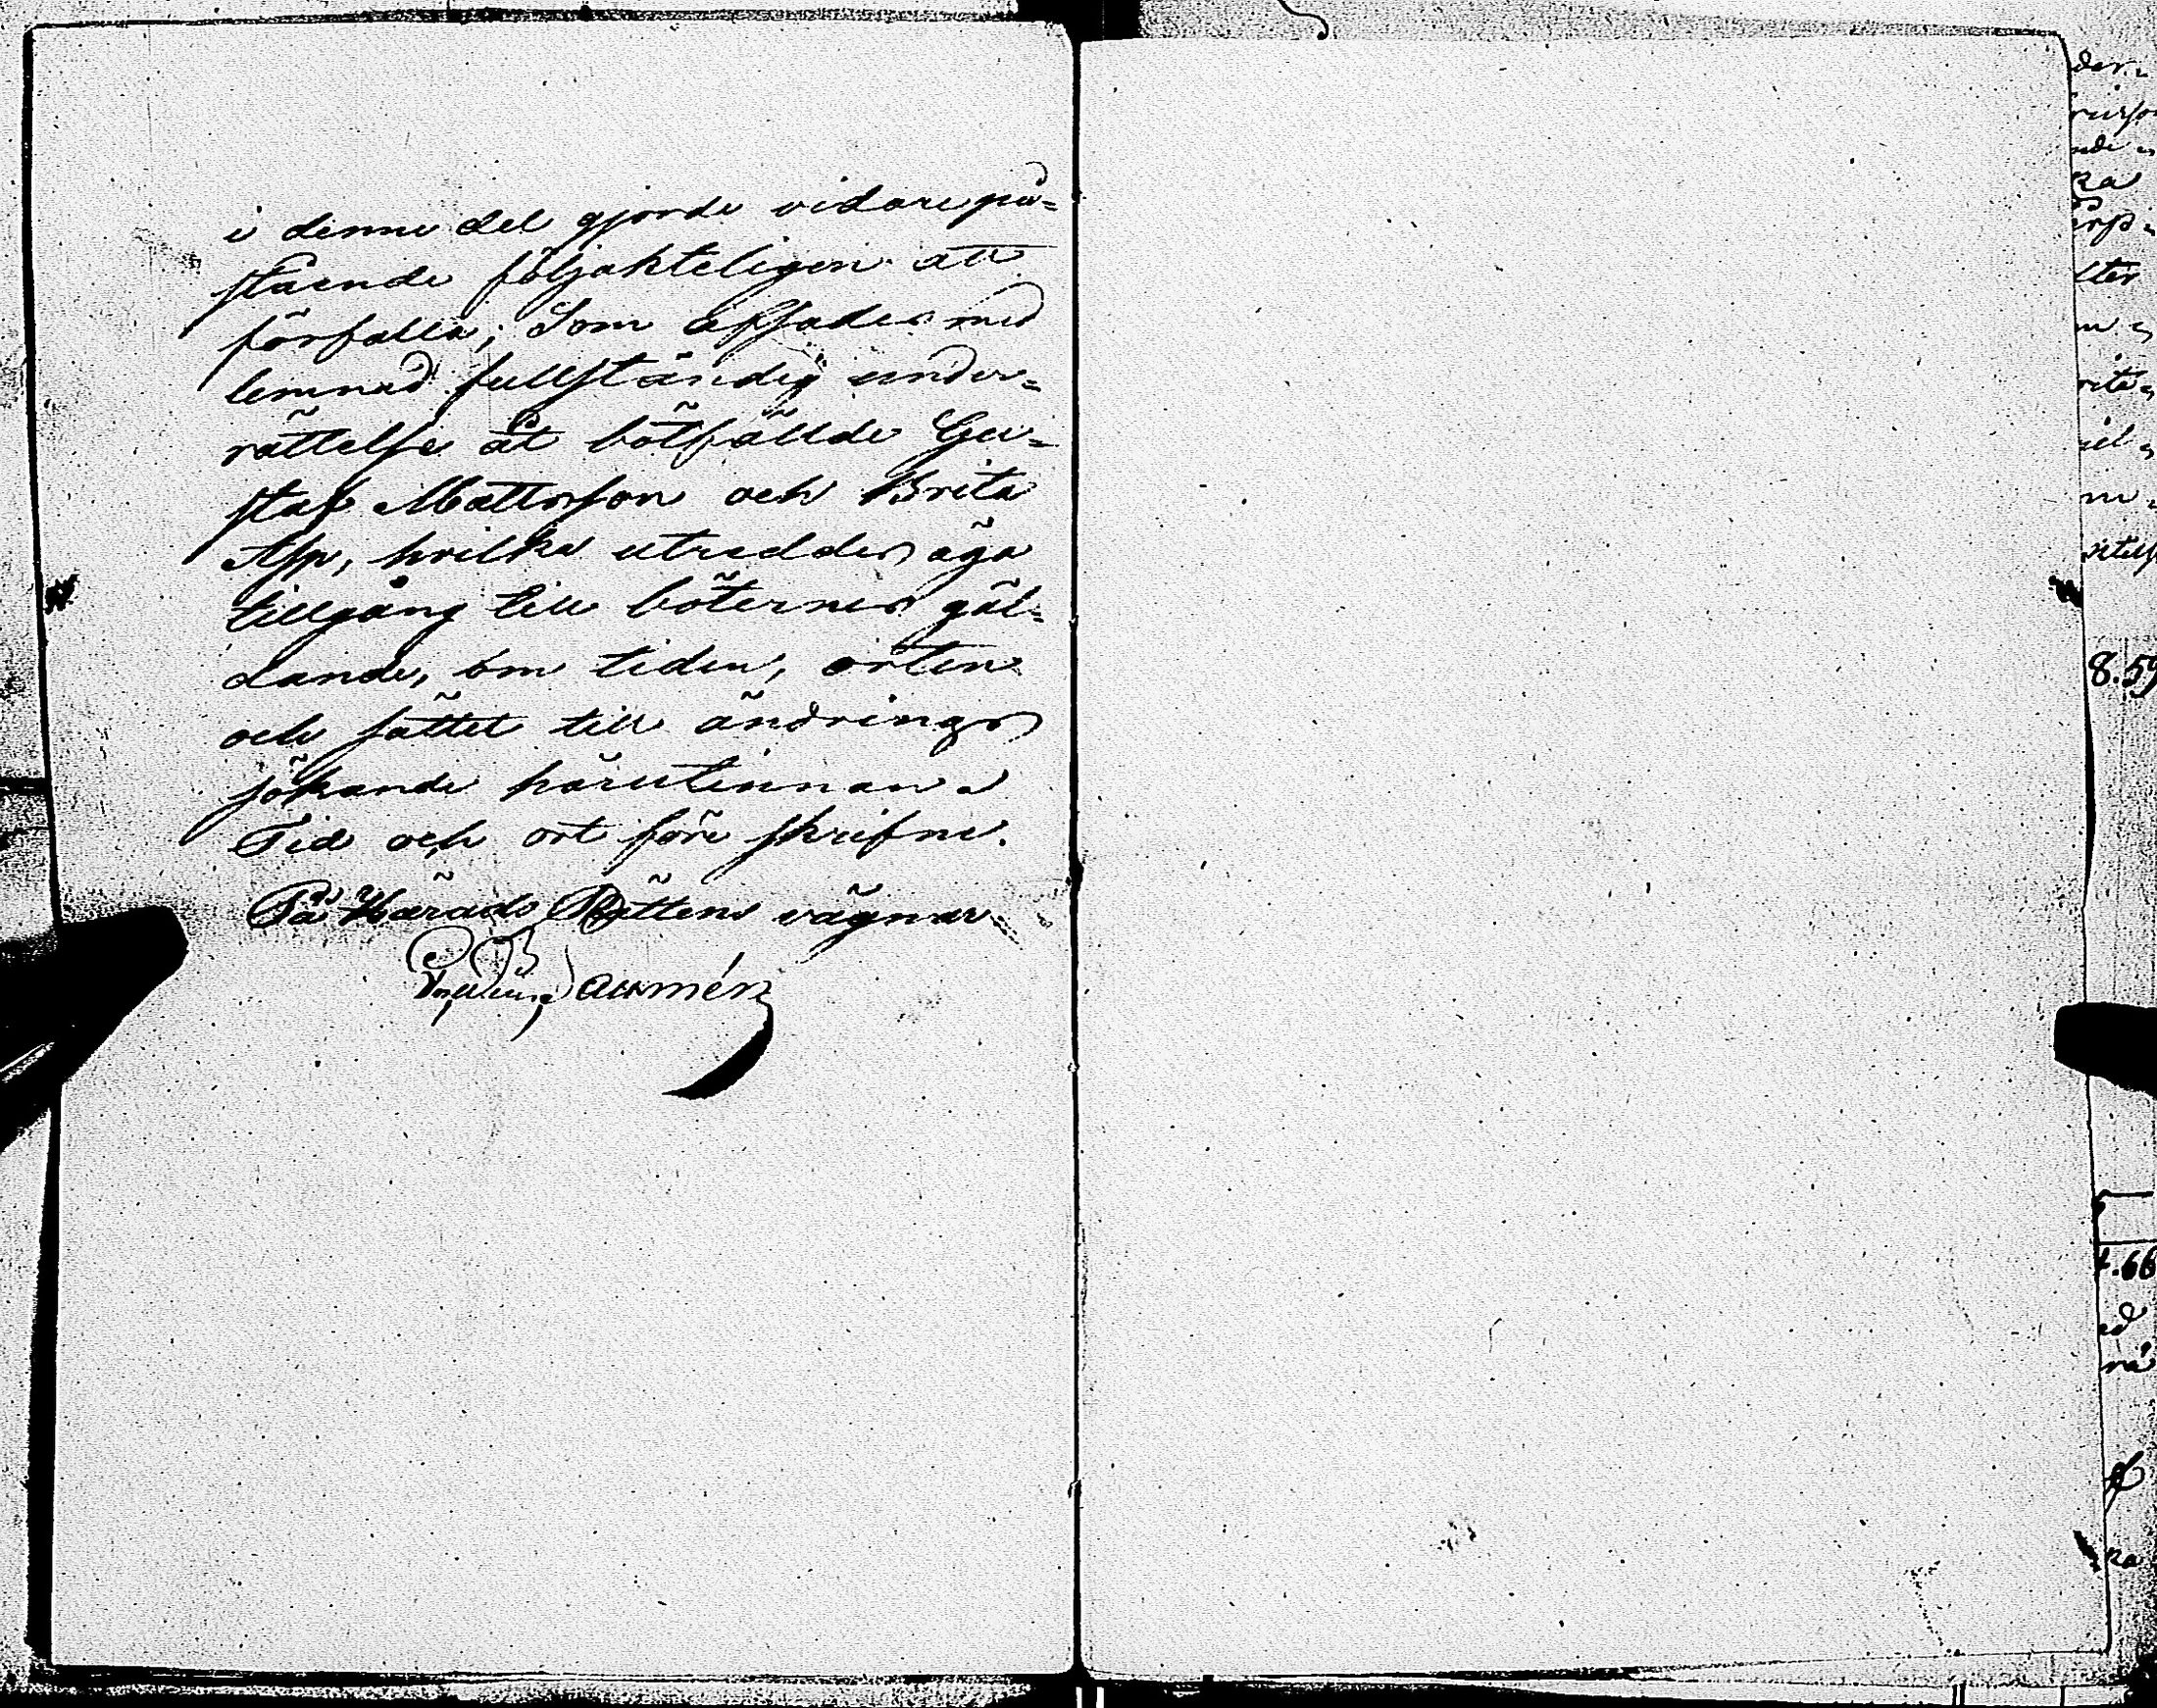 i denne del gjorde vidare på-
stående följakteligen att
förfalla; Som afsades med
lemnad fullständig under-
rättelse åt bötfällde Gu-
staf Mattsson och Brita
Asp, hvilka utreddes äga
tillgång till böternes gäl-
dande, om tiden, orten
och sättet till ändrings
sökande härutinnan.
Tid och ort före skrifne.
På Härads Rättens vägnar
8.59
4.66